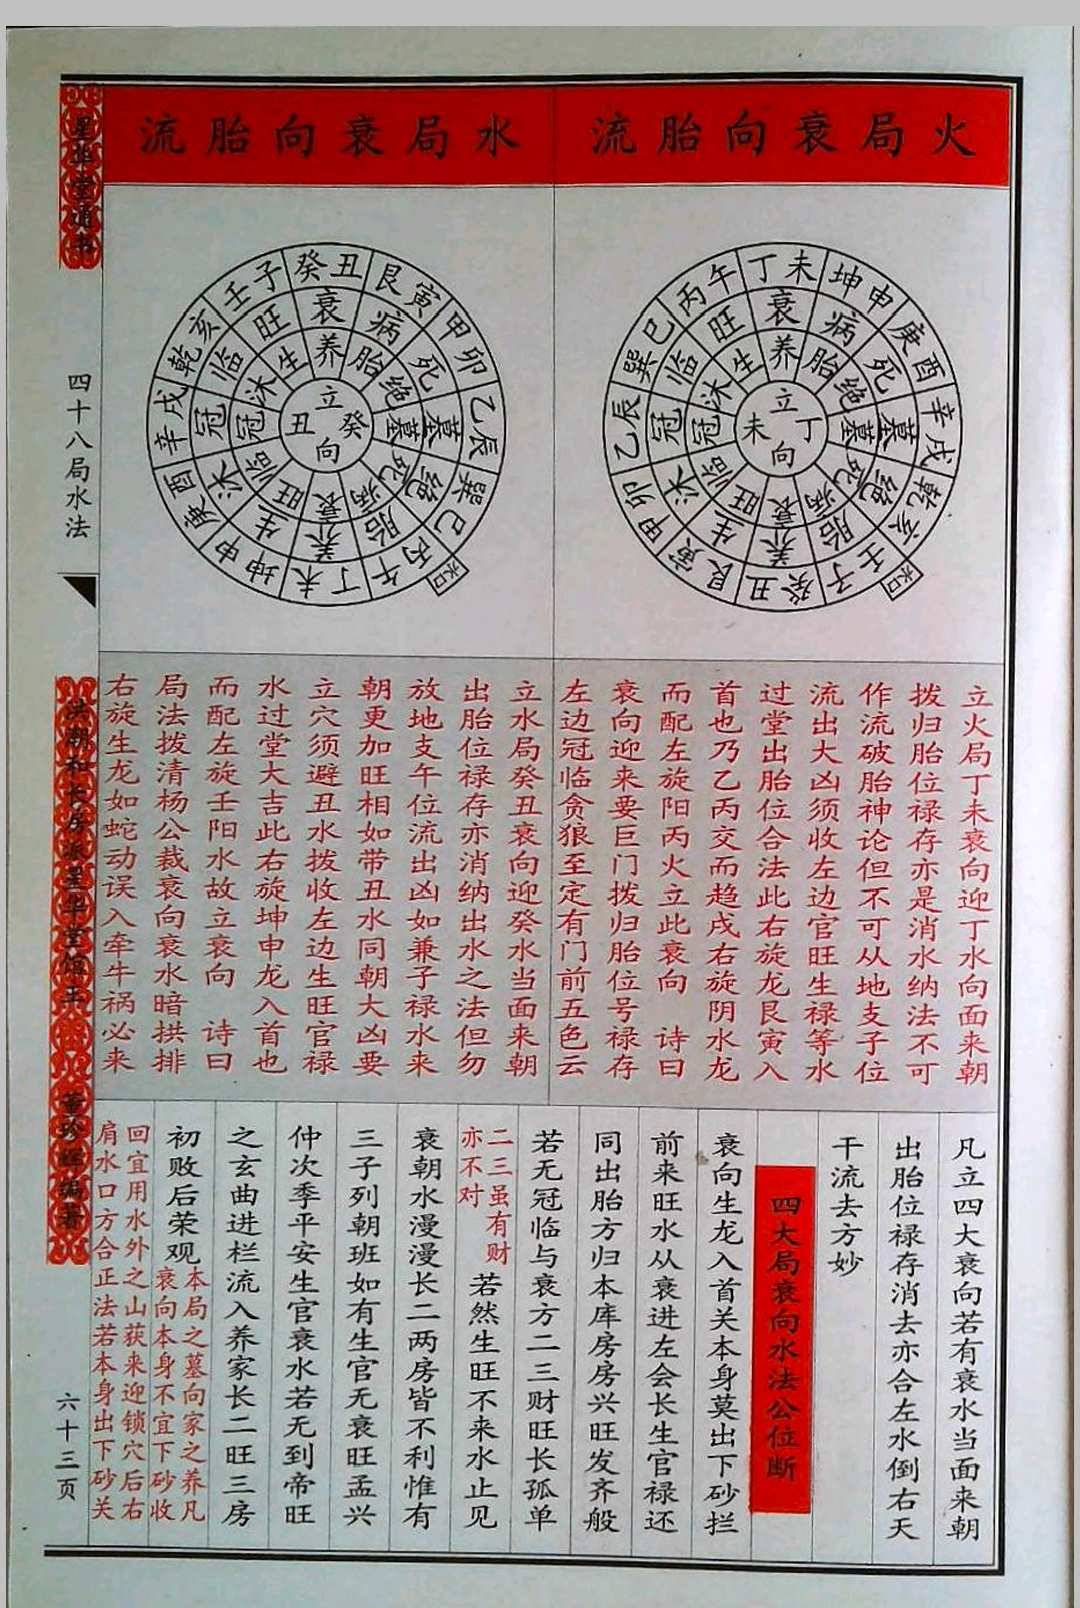 火局衰向胎流
水局衰向胎流
丁未
坤申
庚酉
辛戌
乾亥
壬子
癸丑
艮寅
甲卯
乙辰
巽巳
丙午
衰病死墓绝胎养生沐冠临旺
养胎绝墓死病衰旺临冠沐生
立丁向未
水口
癸丑
艮寅
甲卯
乙辰
巽巳
丙午
丁未
坤申
庚酉
辛戌
乾亥
壬子
衰病死墓绝胎养生沐冠临旺
养胎绝墓死病衰旺临冠沐生
立癸向丑
水口
立火局丁未衰向迎丁水向面来朝
拨归胎位禄存亦是消水纳法不可
作流破胎神论但不可从地支子位
流出大凶须收左边官旺生禄等水
过堂出胎位合法此右旋龙艮寅入
首也乃乙丙交而趋戌右旋阴水龙
而配左旋阳丙火立此衰向 诗曰
衰向迎来要巨门拨归胎位号禄存
左边冠临贪狼至定有门前五色云
立水局癸丑衰向迎癸水当面来朝
出胎位禄存亦消纳出水之法但勿
放地支午位流出凶如兼子禄水来
朝更加旺相如带丑水同朝大凶要
立穴须避丑水拨收左边生旺官禄
水过堂大吉此右旋坤申龙入首也
而配左旋壬阳水故立衰向 诗曰
局法拨清杨公裁衰向衰水暗拱排
右旋生龙如蛇动误入牵牛祸必来
凡立四大衰向若有衰水当面来朝
出胎位禄存消去亦合左水倒右天
干流去方妙
四大局衰向水法公位断
衰向生龙入首关本身莫出下砂拦
前来旺水从衰进左会长生官禄还
同出胎方归本库房房兴旺发齐般
若无冠临与衰方二三财旺长孤单
二三虽有财
亦不对
若然生旺不来水止见
衰朝水漫漫长二两房皆不利惟有
三子列朝班如有生官无衰旺孟兴
仲次季平安生官衰水若无到帝旺
之玄曲进栏流入养家长二旺三房
初败后荣观
本局之墓向家之养凡
衰向本身不宜下砂收
回宜用水外之山获来迎锁穴后右
肩水口方合正法若本身出下砂关
星华堂通书
四十八局水法
洪潮和长房派星华堂馆主
编著
六十三页